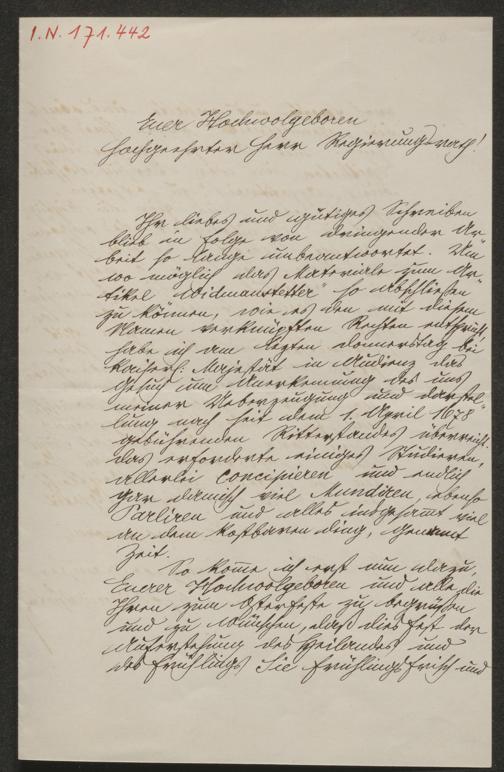 I.N. 171.442
Euer Hochwolgeboren
Hochgeehrter Herr Regierungsrath!
Ihr liebes und gütiges Schreiben
blieb in Folge von dringender Ar-
beit so lange unbeantwortet. Um
wo möglich das Materiale zum Ar-
tikel „Widmanstetter“ so abschließen
zu können, wie es den mit diesem
Namen verknüpften Rechten entspricht
habe ich am lezten Donnerstag bei
Kaiserl. Majestät in Audienz das
Gesuch um Anerkennung des uns
meiner Ueberzeugung und Darstel-
lung nach seit dem 1. April 1678
gebührenden Ritterstandes überreicht.
das erforderte einiges Studieren,
allerlei Concipieren und endlich
gar damisch viel Mundiren, ebenso
Parliren und alles insgesammt viel
an dem kostbaren Ding, genannt
Zeit.
So komme ich erst nun dazu
Euerer Hochwolgeboren und alle die
Ihren zum Osterfeste zu begrüßen
und zu wünschen, daß dies Fest der
Auferstehung des Heilandes und
des Frühlings Sie frühlingsfrisch und